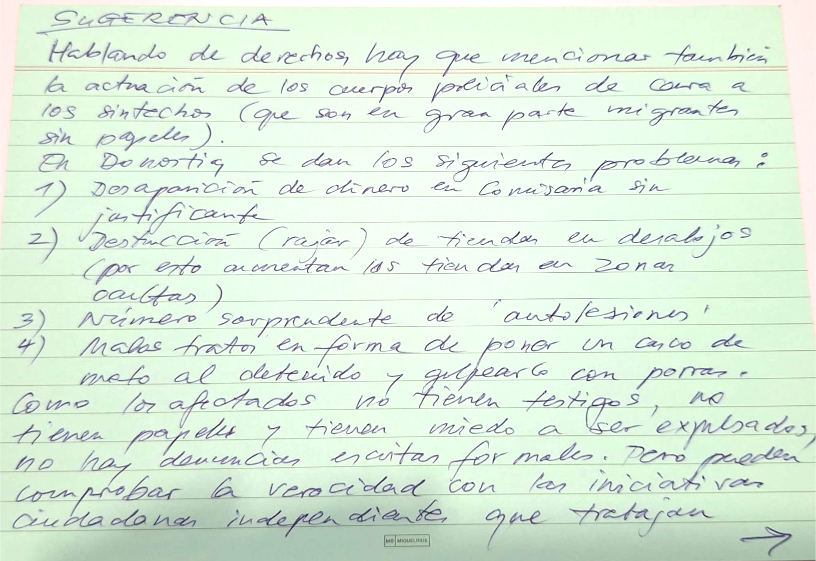 SUGERENCIA
Hablando de derechos, hay que mencionar también
la actuación de los cuerpos policiales de cara a
los sintechos (que son en gran parte migrantes
sin papeles).
En Donostia se dan los siguientes problemas:
1) Desaparición de dinero en Comisaría sin
justificante
2) Destrucción (rajar) de tiendas en desalojos
(por esto aumentan las tiendas en zonas
ocultas)
3) Número sorprendente de 'autolesiones'
4) Malos tratos en forma de poner un casco de
moto al detenido y golpearlo con porras.
Como los afectados no tienen testigos, no
tienen papeles y tienen miedo a ser expulsados,
no hay denuncias escritas formales. Pero pueden
comprobar la veracidad con las iniciativas
ciudadanas independientes que trabajan
→
MR MIQUELRIUS